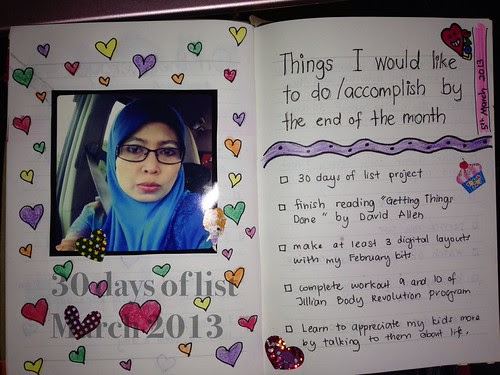 30 days of list
March 2013
Things I would like
to do / accomplish by
the end of the month
5th March 2013
30 days of list project
finish reading "Getting Things
Done" by David Allen
make at least 3 digital layouts
with my February bits
complete workout 9 and 10 of
Jillian Body Revolution Program
Learn to appreciate my kids more
by talking to them about life.